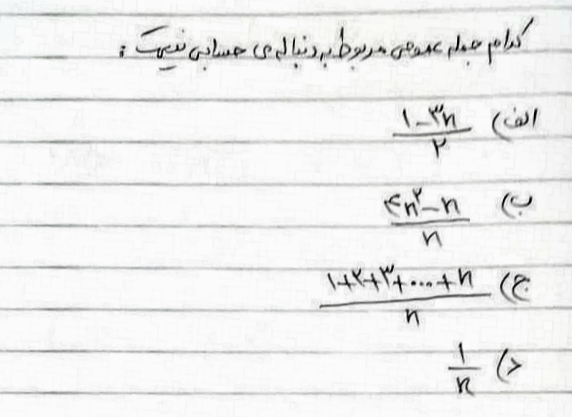 کدام جمله عمومی مربوط به دنباله‌ی حسابی نیست :
الف) (۱-۳n)/۲
ب) (۴n^۲-n)/n
ج) (۱+۲+۳+...+n)/n
د) ۱/n